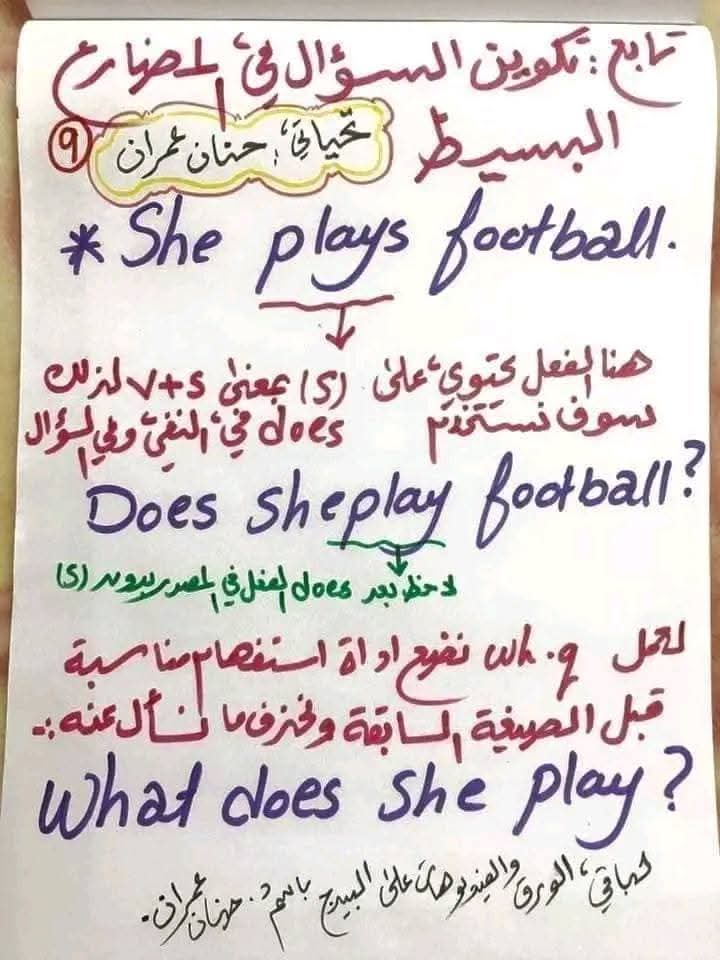 تابع: تكوين السؤال في المضارع
البسيط
تحياتي، حنان عمران
٩
* She plays football.
هنا الفعل يحتوي على (s) بمعنى v+s لذلك
سوف نستخدم does في النفي وفي السؤال
Does she play football?
لاحظ بعد does الفعل في المصدر بدون (s)
لعمل wh.q نضع اداة استفهام مناسبة
قبل الصيغة السابقة ونحذف ما نسأل عنه:-
What does she play?
باقي الورق والفيديوهات على البيدج باسم: حنان عمران.